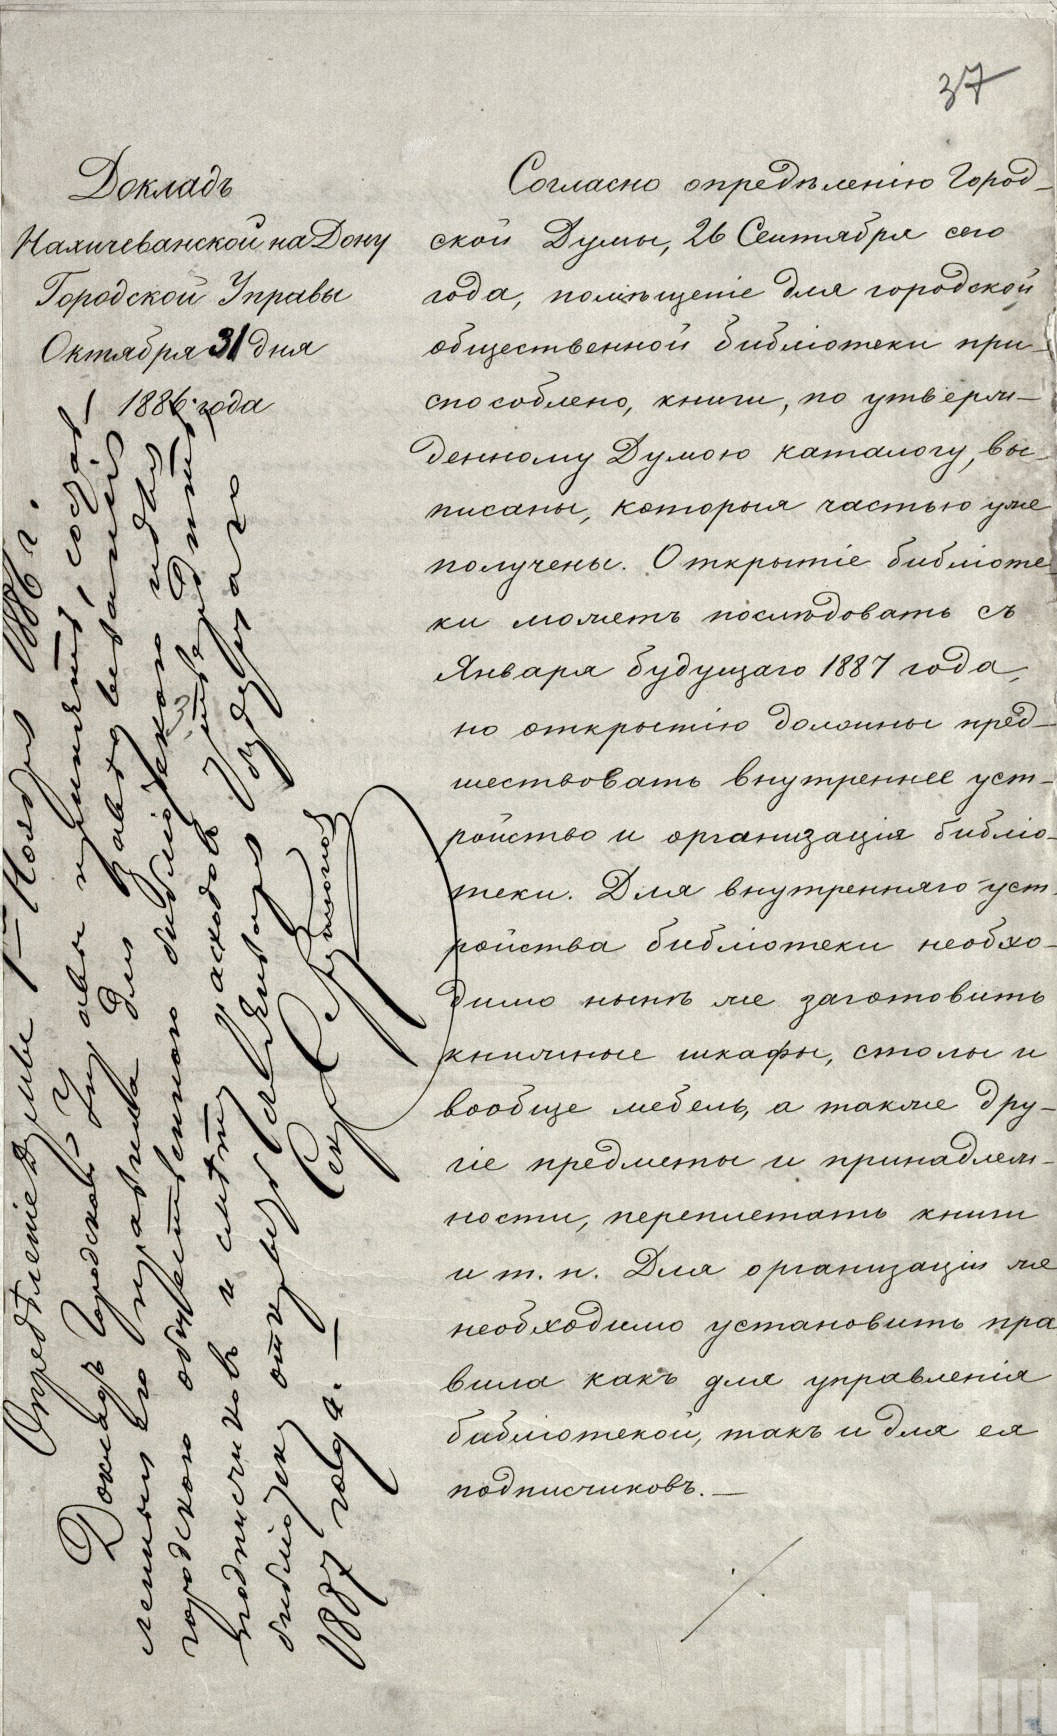 37
Докладъ
Нахичеванской на Дону
Городской Управы
Октября 31 дня
1886 года
Согласно опредѣленію Город-
ской Думы, 26 Сентября сего
года, помѣщеніе для городской
общественной библіотеки при-
способлено, книги, по утверж-
денному Думою каталогу, вы-
писаны, которыя частью уже
получены. Открытіе библіоте-
ки можетъ послѣдовать съ
Января будущаго 1887 года,
но открытію должны пред-
шествовать внутреннее уст-
ройство и организація библіо-
теки. Для внутренняго уст-
ройства библіотеки необхо-
димо нынѣ же заготовить
книжные шкафы, столы и
вообще мебель, а также дру-
гіе предметы и принадлеж-
ности, переплетать книги
и т. п. Для организаціи же
необходимо установить пра
вила какъ для управленія
библіотекой, такъ и для ея
подписчиковъ. —
Опредѣленіе Думы 1го Ноября 1886 г.
Докладъ Городской Управы принять, состав-
ленныя ею правила для завѣдыванія
городскою общественною библіотекою и для
подписчиковъ и смѣту расходовъ утвердить
библіотеку открыть съ Января будущаго
1887 года. —
Секр.